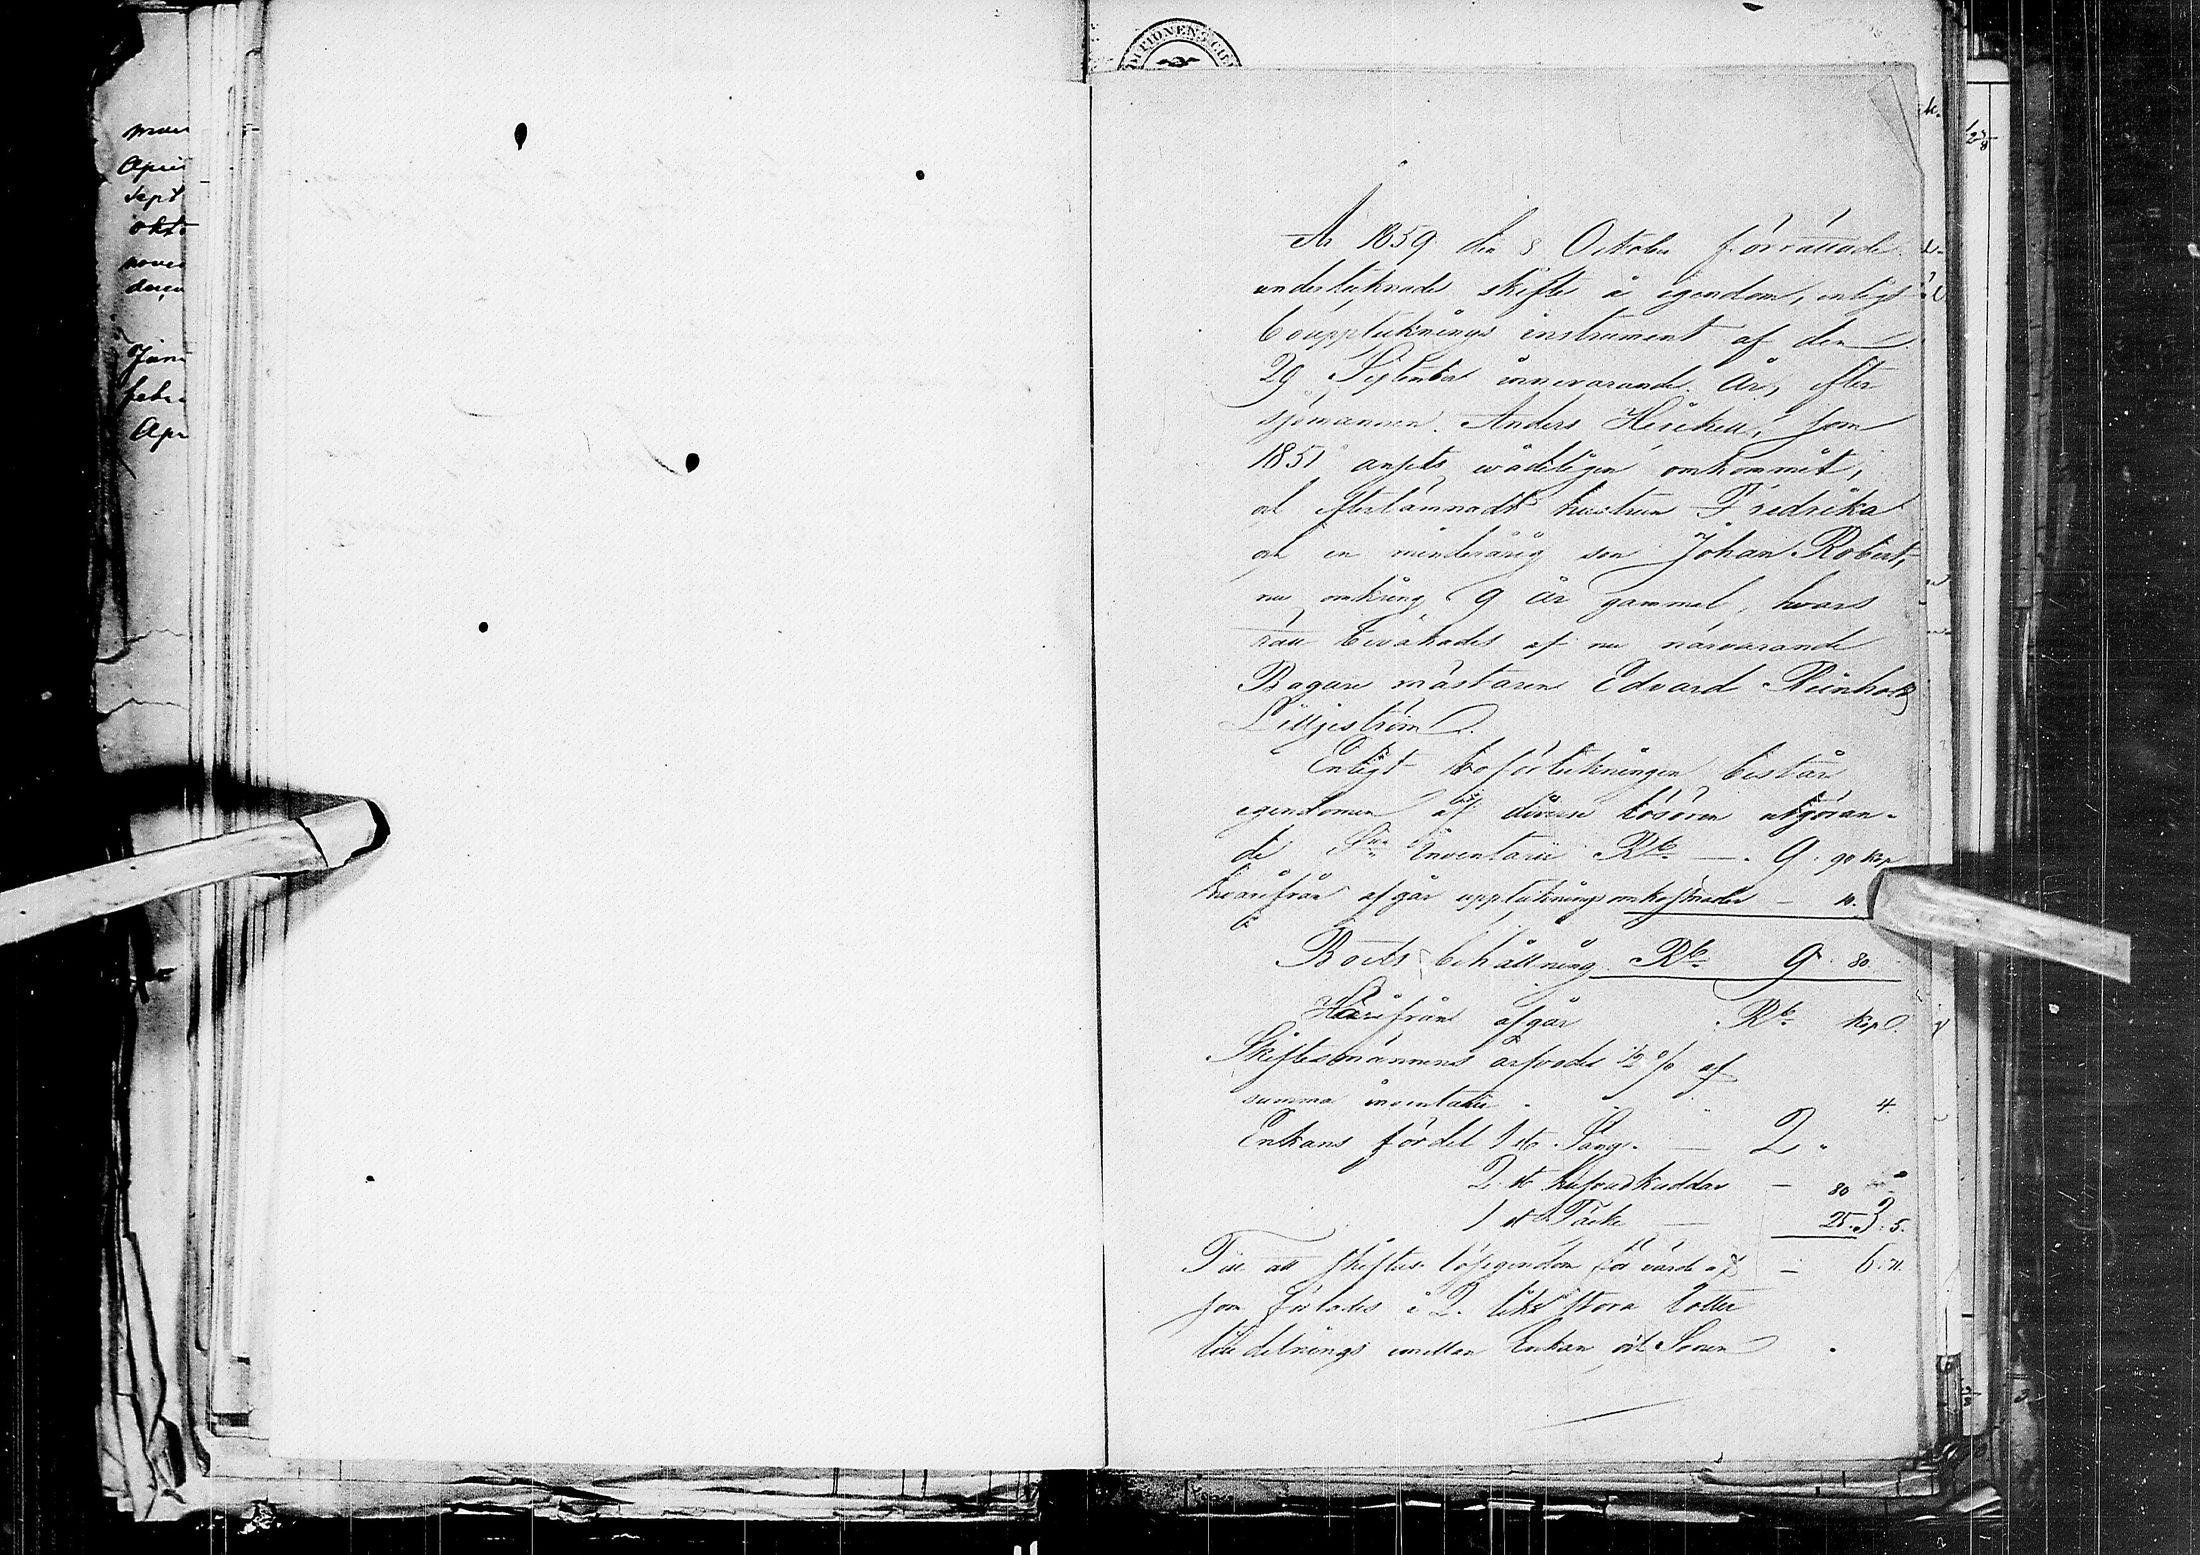 mar
April
Sept
okto
nove
decem
Janu
febr
Apr
År 1859 den 8 October förrättade
undertecknade skifte å egendom, enligt
boupptecknings instrument af den
29 September innevarande År, efter
sjömannen Anders Heickell, som
1851 anses wådeligen omkommit,
och efterlämnadt hustrun Fredrika
och en minderårig son Johan Robert,
nu omkring 9 år gammal, hvars
rätt bevakades af nu närvarande
Bagare mästaren Edvard Reinhold
Lilljeström.
Enligt boförteckningen består
egendomen af diverse lösören utgöran-
de S:ma Inventarii Rb. — 9. 90 kop
hvarifrån afgår uppteknings omkostnader — 10.
Boets behållning Rb. 9. 80.
Härifrån afgår Rb. Kop.
Skiftesmännens arfvode ½ % af
summa inventarii . 4.
Enkans fördel 1 st. Säng. — 2 "
2 st hufvudkuddar — 80
1 st Täcke — 25. 3. 5.
Till att skiftas lösegendom för värde af — 6. 71.
som förlades i 2. lika stora lotter
till delnings emellan Enkan och Sonen